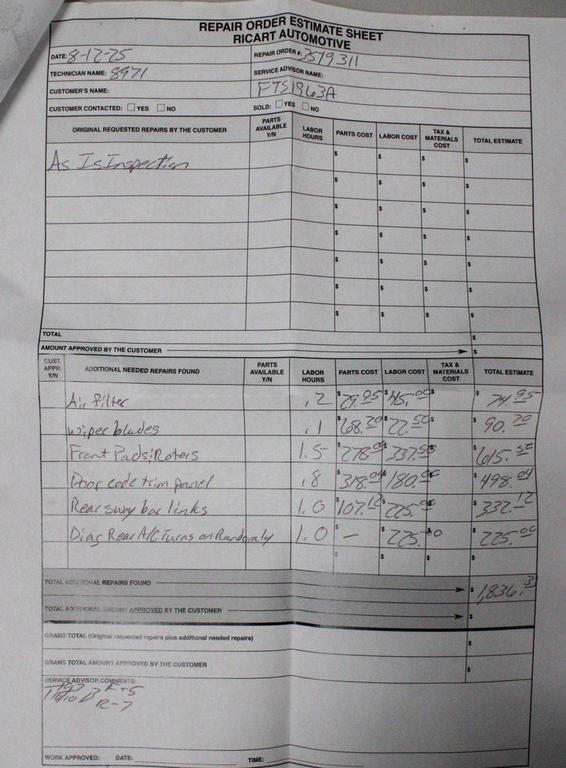 REPAIR ORDER ESTIMATE SHEET
RICART AUTOMOTIVE
DATE: 8-12-25 REPAIR ORDER #: 3579311
TECHNICIAN NAME: 8971 SERVICE ADVISOR NAME:
CUSTOMER'S NAME: FTS1963A
CUSTOMER CONTACTED: ☐ YES ☐ NO SOLD: ☐ YES ☐ NO
ORIGINAL REQUESTED REPAIRS BY THE CUSTOMER PARTS AVAILABLE Y/N LABOR HOURS PARTS COST LABOR COST TAX & MATERIALS COST TOTAL ESTIMATE
As Is Inspection $ $ $ $
$ $ $ $
$ $ $ $
$ $ $ $
$ $ $ $
$ $ $ $
$ $ $ $
TOTAL $
AMOUNT APPROVED BY THE CUSTOMER $
CUST. APPR. Y/N ADDITIONAL NEEDED REPAIRS FOUND PARTS AVAILABLE Y/N LABOR HOURS PARTS COST LABOR COST TAX & MATERIALS COST TOTAL ESTIMATE
Air filter .2 $29.95 $45.00 $ $74.95
wiper blades .1 $68.20 $22.50 $ $90.70
Front Pads/Roters 1.5 $278.00 $337.50 $ $615.50
Door code trim panel .8 $318.04 $180.00 $ $498.04
Rear sway bar links 1.0 $107.12 $225.00 $ $332.12
Diag Rear A/C Turns on Randomly 1.0 $- $225.00 $ $225.00
$ $ $ $
TOTAL ADDITIONAL REPAIRS FOUND $1,836.31
TOTAL ADDITIONAL AMOUNT APPROVED BY THE CUSTOMER $
GRAND TOTAL (Original requested repairs plus additional needed repairs) $
GRAND TOTAL AMOUNT APPROVED BY THE CUSTOMER $
SERVICE ADVISOR COMMENTS:
F-5
R-7
WORK APPROVED: DATE: TIME: